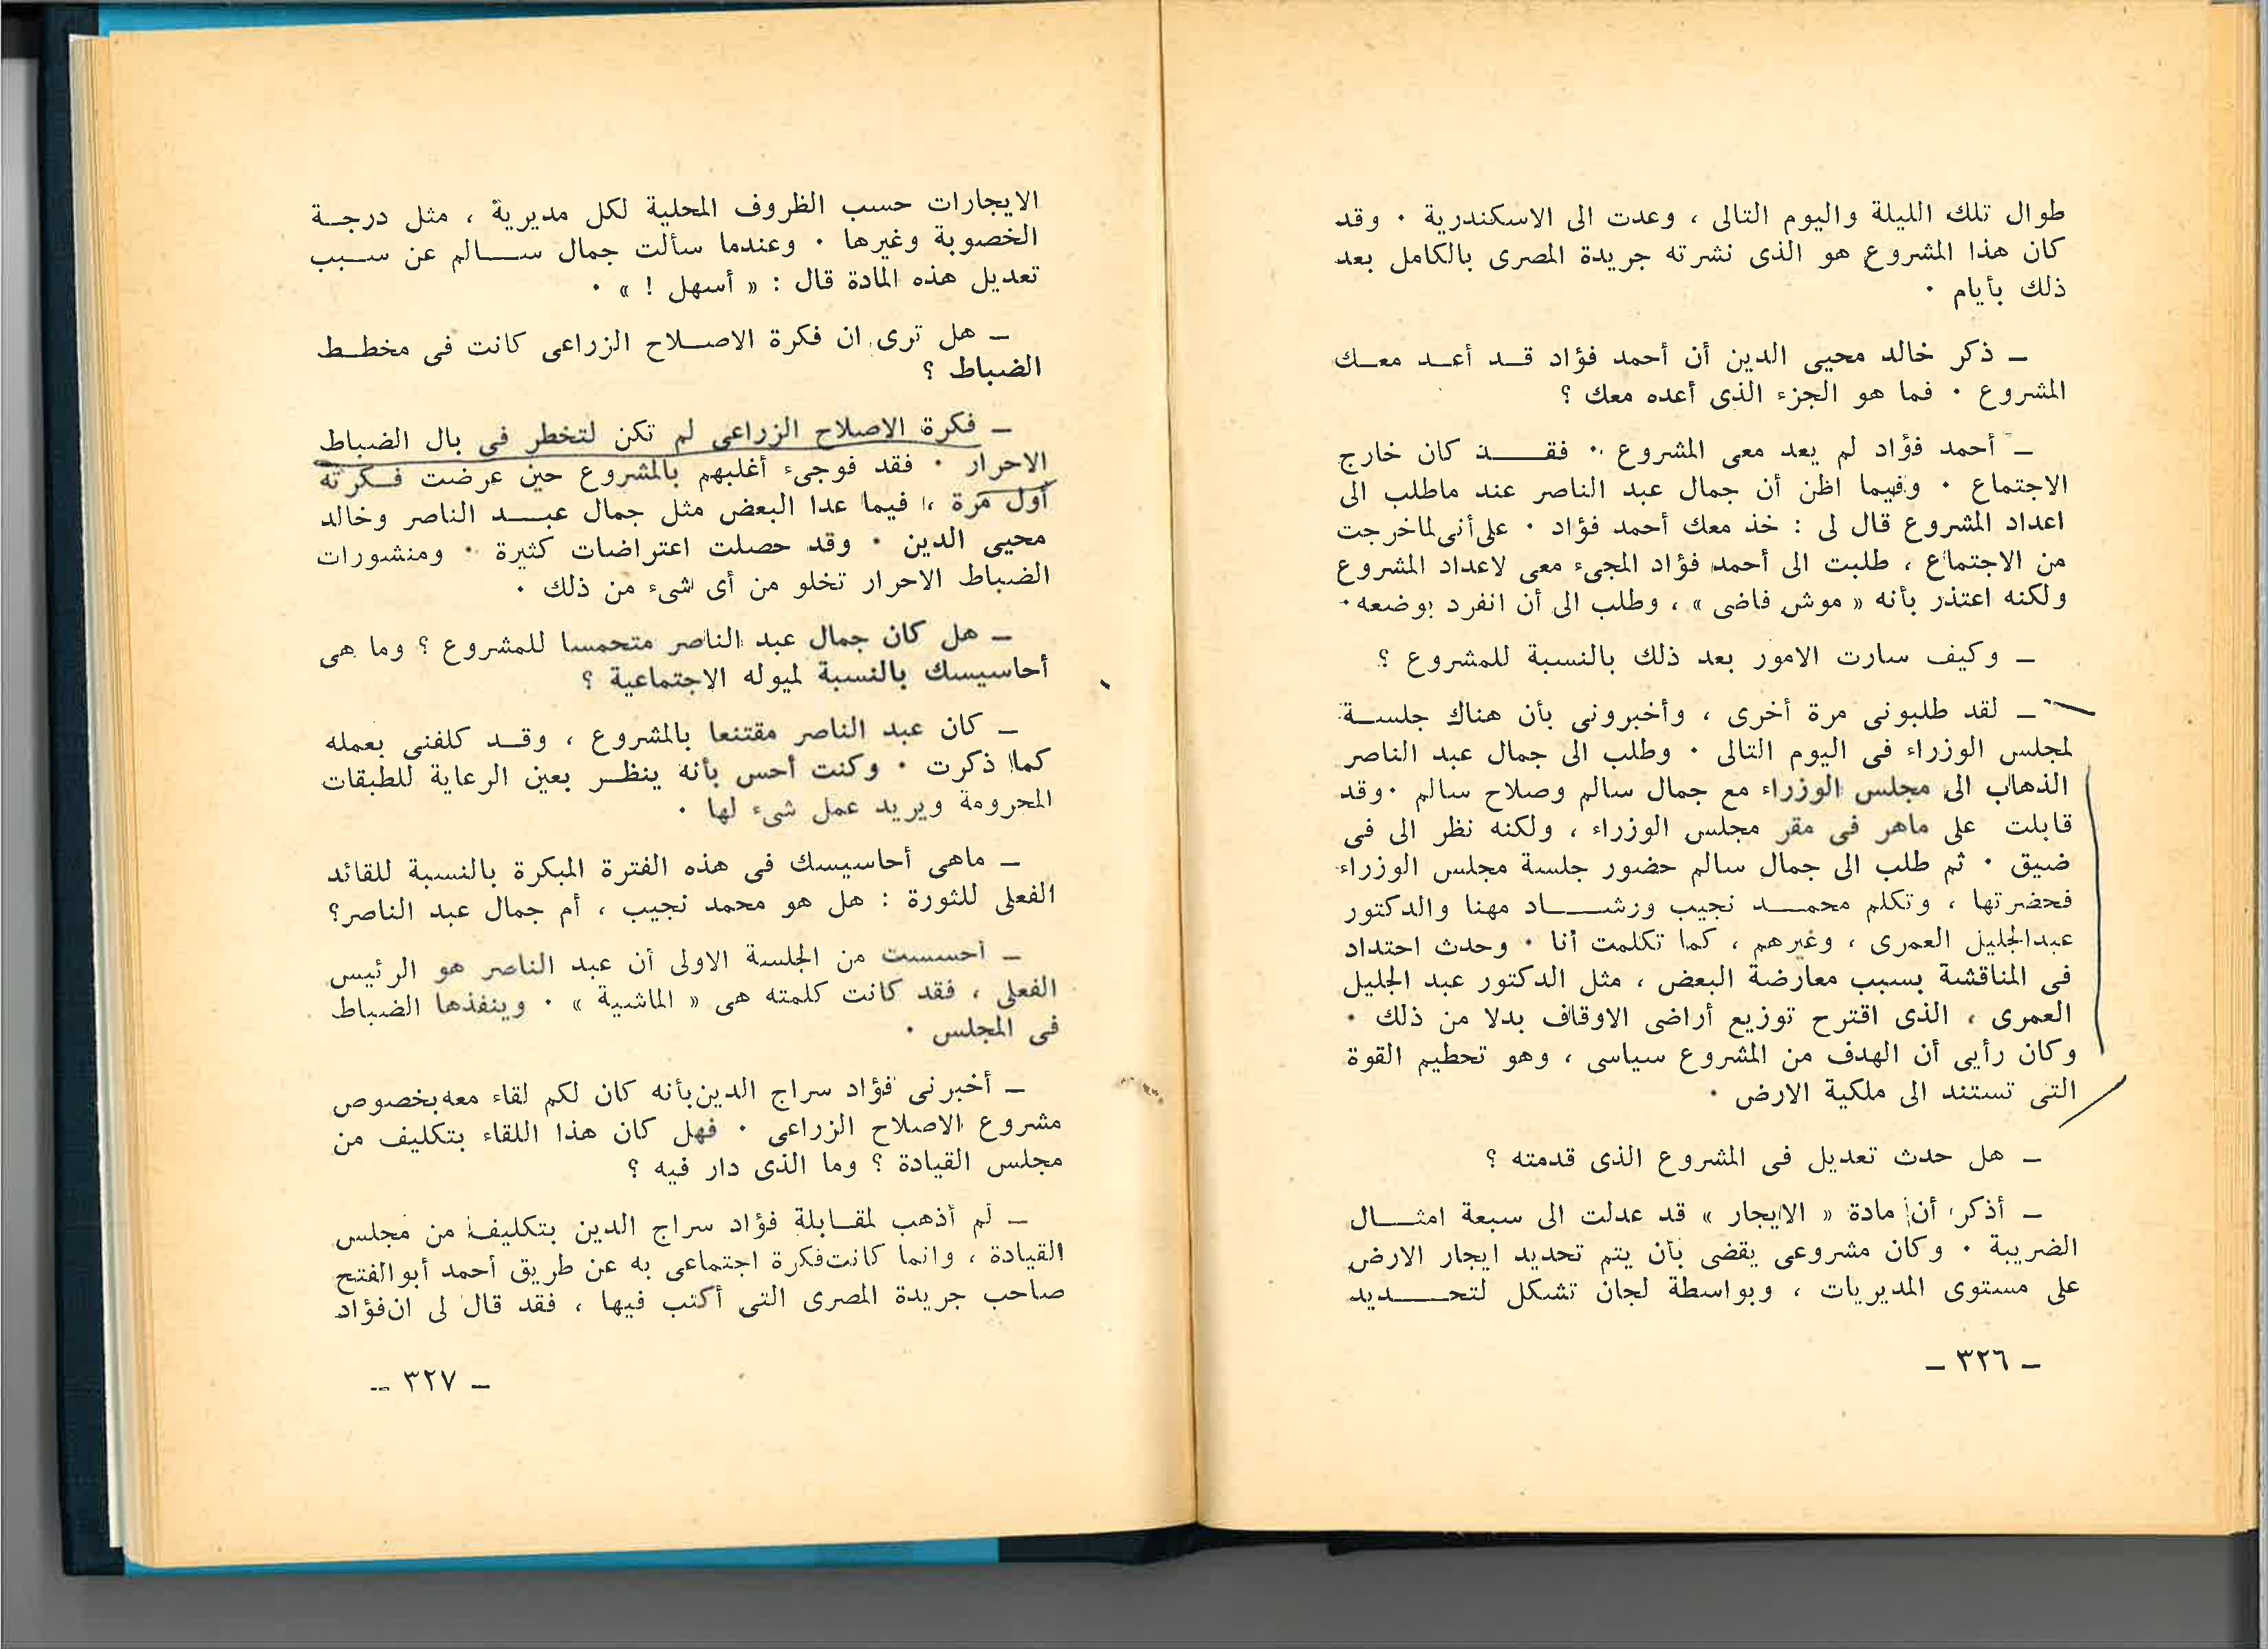 طوال تلك الليلة واليوم التالى ، وعدت الى الاسكندرية . وقد
كان هذا المشروع هو الذى نشرته جريدة المصرى بالكامل بعد
ذلك بأيام .
ـ ذكر خالد محيى الدين أن أحمد فؤاد قد أعد معك
المشروع . فما هو الجزء الذى أعده معك ؟
ـ أحمد فؤاد لم يعد معى المشروع . فقد كان خارج
الاجتماع . وفيما اظن أن جمال عبد الناصر عند ماطلب الى
اعداد المشروع قال لى : خذ معك أحمد فؤاد . على أنى لما خرجت
من الاجتماع ، طلبت الى أحمد فؤاد المجىء معى لاعداد المشروع
ولكنه اعتذر بأنه « موش فاضى » ، وطلب الى أن انفرد بوضعه .
ـ وكيف سارت الامور بعد ذلك بالنسبة للمشروع ؟
ـ لقد طلبونى مرة أخرى ، وأخبرونى بأن هناك جلسة
لمجلس الوزراء فى اليوم التالى . وطلب الى جمال عبد الناصر
الذهاب الى مجلس الوزراء مع جمال سالم وصلاح سالم . وقد
قابلت على ماهر فى مقر مجلس الوزراء ، ولكنه نظر الى فى
ضيق . ثم طلب الى جمال سالم حضور جلسة مجلس الوزراء
فحضرتها ، وتكلم محمد نجيب ورشاد مهنا والدكتور
عبدالجليل العمرى ، وغيرهم ، كما تكلمت أنا . وحدث احتداد
فى المناقشة بسبب معارضة البعض ، مثل الدكتور عبد الجليل
العمرى ، الذى اقترح توزيع أراضى الاوقاف بدلا من ذلك .
وكان رأيى أن الهدف من المشروع سياسى ، وهو تحطيم القوة
التى تستند الى ملكية الارض .
ـ هل حدث تعديل فى المشروع الذى قدمته ؟
ـ أذكر أن مادة « الايجار » قد عدلت الى سبعة امثال
الضريبة . وكان مشروعى يقضى بأن يتم تحديد ايجار الارض
على مستوى المديريات ، وبواسطة لجان تشكل لتحديد
ـ ٣٢٦ ـ
الايجارات حسب الظروف المحلية لكل مديرية ، مثل درجة
الخصوبة وغيرها . وعندما سألت جمال سالم عن سبب
تعديل هذه المادة قال : « أسهل ! » .
ـ هل ترى ان فكرة الاصلاح الزراعى كانت فى مخطط
الضباط ؟
ـ فكرة الاصلاح الزراعى لم تكن لتخطر فى بال الضباط
الاحرار . فقد فوجىء أغلبهم بالمشروع حين عرضت فكرته
أول مرة ، فيما عدا البعض مثل جمال عبد الناصر وخالد
محيى الدين . وقد حصلت اعتراضات كثيرة . ومنشورات
الضباط الاحرار تخلو من أى شىء من ذلك .
ـ هل كان جمال عبد الناصر متحمسا للمشروع ؟ وما هى
أحاسيسك بالنسبة لميوله الاجتماعية ؟
ـ كان عبد الناصر مقتنعا بالمشروع ، وقد كلفنى بعمله
كما ذكرت . وكنت أحس بأنه ينظر بعين الرعاية للطبقات
المحرومة ويريد عمل شىء لها .
ـ ماهى أحاسيسك فى هذه الفترة المبكرة بالنسبة للقائد
الفعلى للثورة : هل هو محمد نجيب ، أم جمال عبد الناصر؟
ـ أحسست من الجلسة الاولى أن عبد الناصر هو الرئيس
الفعلى ، فقد كانت كلمته هى « الماشية » . وينفذها الضباط
فى المجلس .
ـ أخبرنى فؤاد سراج الدين بأنه كان لكم لقاء معه بخصوص
مشروع الاصلاح الزراعى . فهل كان هذا اللقاء بتكليف من
مجلس القيادة ؟ وما الذى دار فيه ؟
ـ لم أذهب لمقابلة فؤاد سراج الدين بتكليف من مجلس
القيادة ، وانما كانت فكرة اجتماعى به عن طريق أحمد أبو الفتح
صاحب جريدة المصرى التى أكتب فيها ، فقد قال لى ان فؤاد
ـ ٣٢٧ ـ